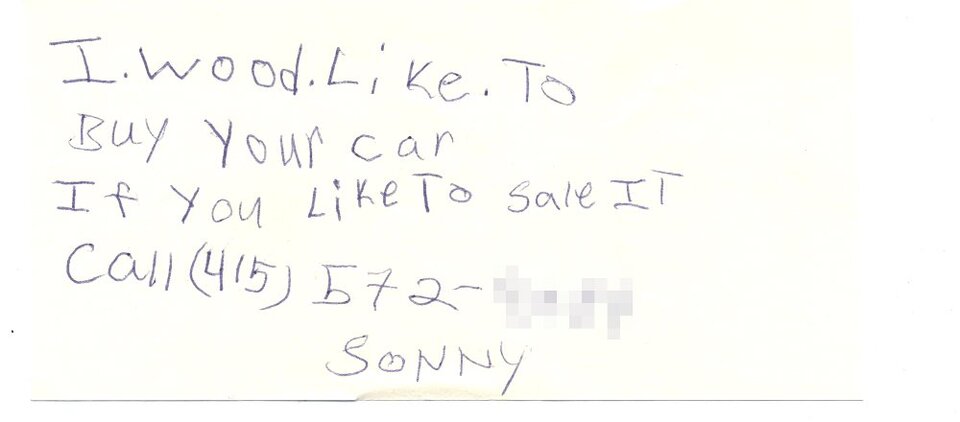 I.wood.Like.To
Buy Your car
If You Like To Sale IT
Call (415) 572-
SONNY